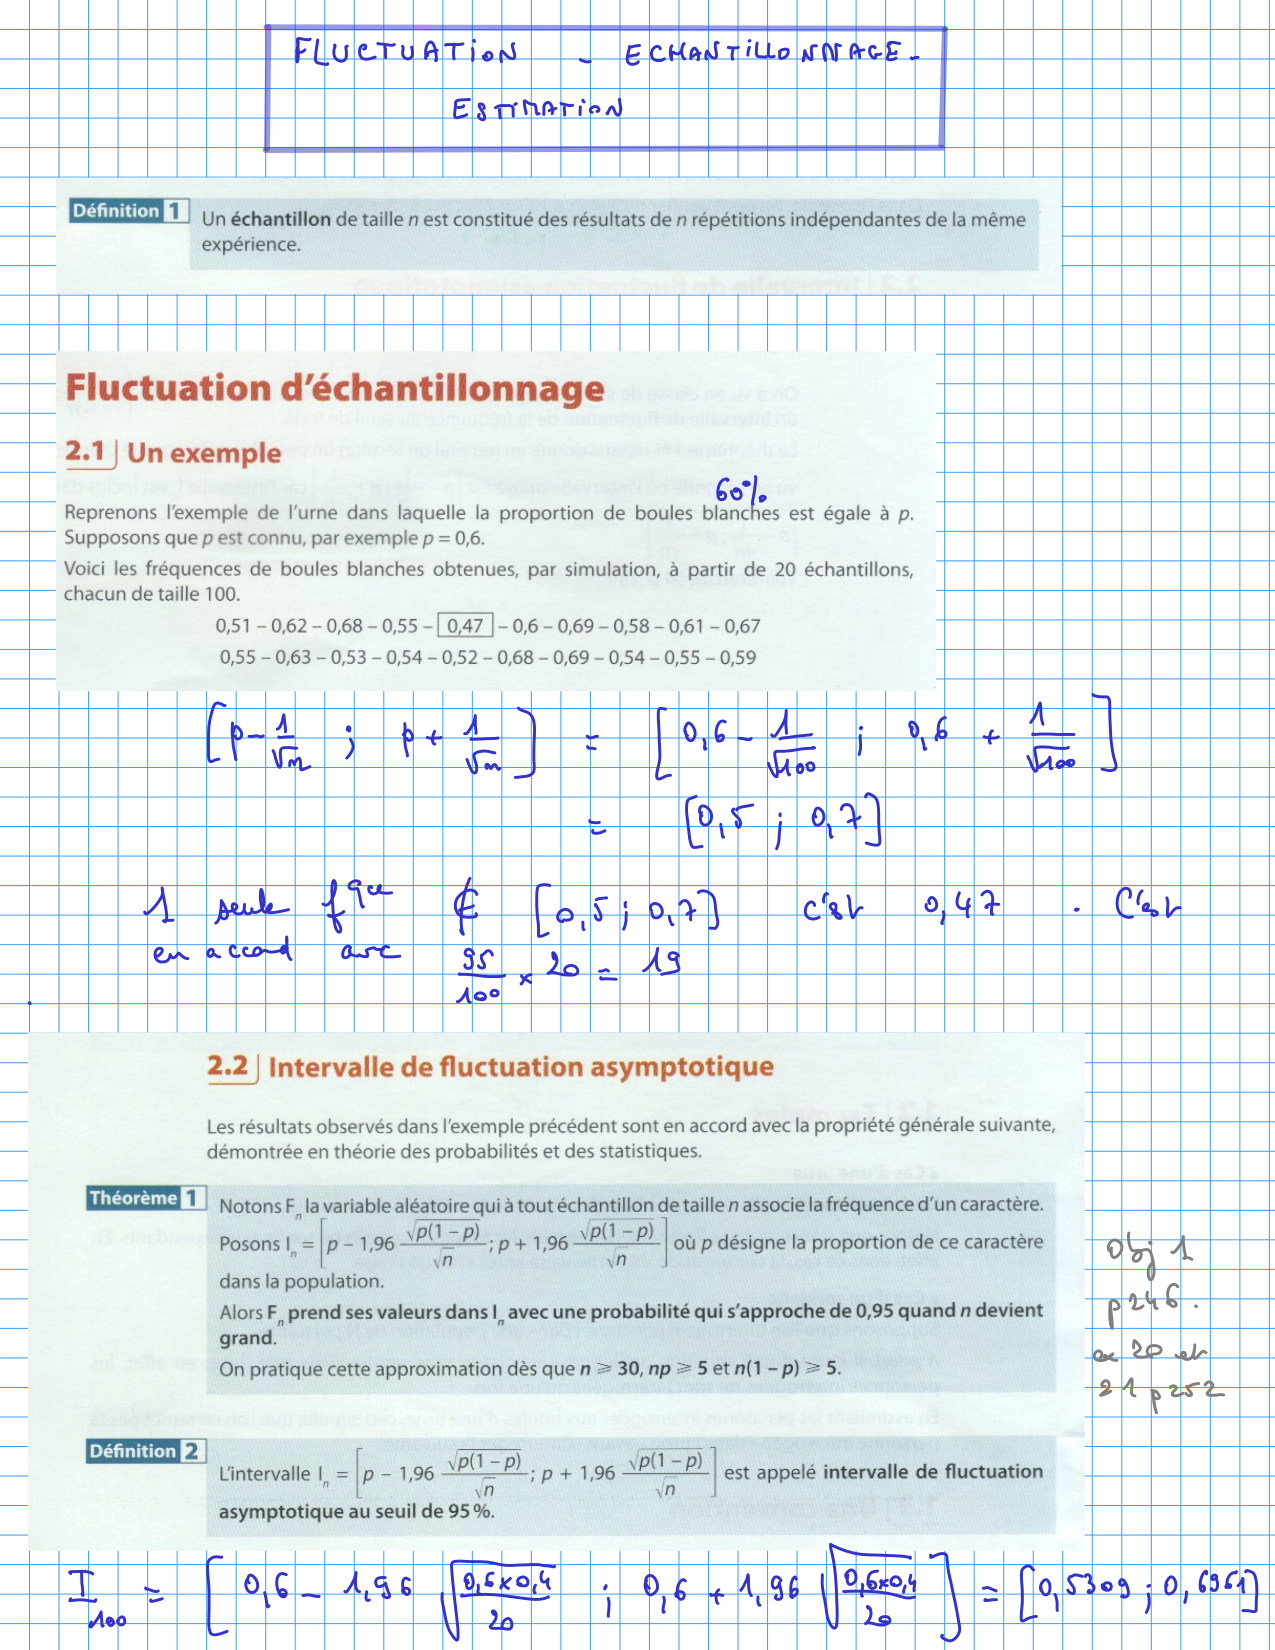 FLUCTUATION - ECHANTILLONNAGE -
ESTIMATION
Définition 1 Un échantillon de taille n est constitué des résultats de n répétitions indépendantes de la même
expérience.
Fluctuation d'échantillonnage
2.1 | Un exemple
60%
Reprenons l'exemple de l'urne dans laquelle la proportion de boules blanches est égale à p.
Supposons que p est connu, par exemple p = 0,6.
Voici les fréquences de boules blanches obtenues, par simulation, à partir de 20 échantillons,
chacun de taille 100.
0,51 – 0,62 – 0,68 – 0,55 – 0,47 – 0,6 – 0,69 – 0,58 – 0,61 – 0,67
0,55 – 0,63 – 0,53 – 0,54 – 0,52 – 0,68 – 0,69 – 0,54 – 0,55 – 0,59
[p - 1/√n ; p + 1/√n] = [0,6 - 1/√100 ; 0,6 + 1/√100]
= [0,5 ; 0,7]
1 seule fqce ∉ [0,5 ; 0,7] c'est 0,47 . C'est
en accord avec 95/100 × 20 = 19
2.2 | Intervalle de fluctuation asymptotique
Les résultats observés dans l'exemple précédent sont en accord avec la propriété générale suivante,
démontrée en théorie des probabilités et des statistiques.
Théorème 1 Notons Fn la variable aléatoire qui à tout échantillon de taille n associe la fréquence d'un caractère.
Posons In = [p – 1,96 √p(1 – p)/√n ; p + 1,96 √p(1 – p)/√n] où p désigne la proportion de ce caractère
dans la population.
Alors Fn prend ses valeurs dans In avec une probabilité qui s'approche de 0,95 quand n devient
grand.
On pratique cette approximation dès que n ⩾ 30, np ⩾ 5 et n(1 – p) ⩾ 5.
Obj 1
p246.
ex 20 et
21 p252
Définition 2 L'intervalle In = [p – 1,96 √p(1 – p)/√n ; p + 1,96 √p(1 – p)/√n] est appelé intervalle de fluctuation
asymptotique au seuil de 95 %.
I100 = [0,6 - 1,96 √(0,6×0,4/20) ; 0,6 + 1,96 √(0,6×0,4/20)] = [0,5309 ; 0,6961]